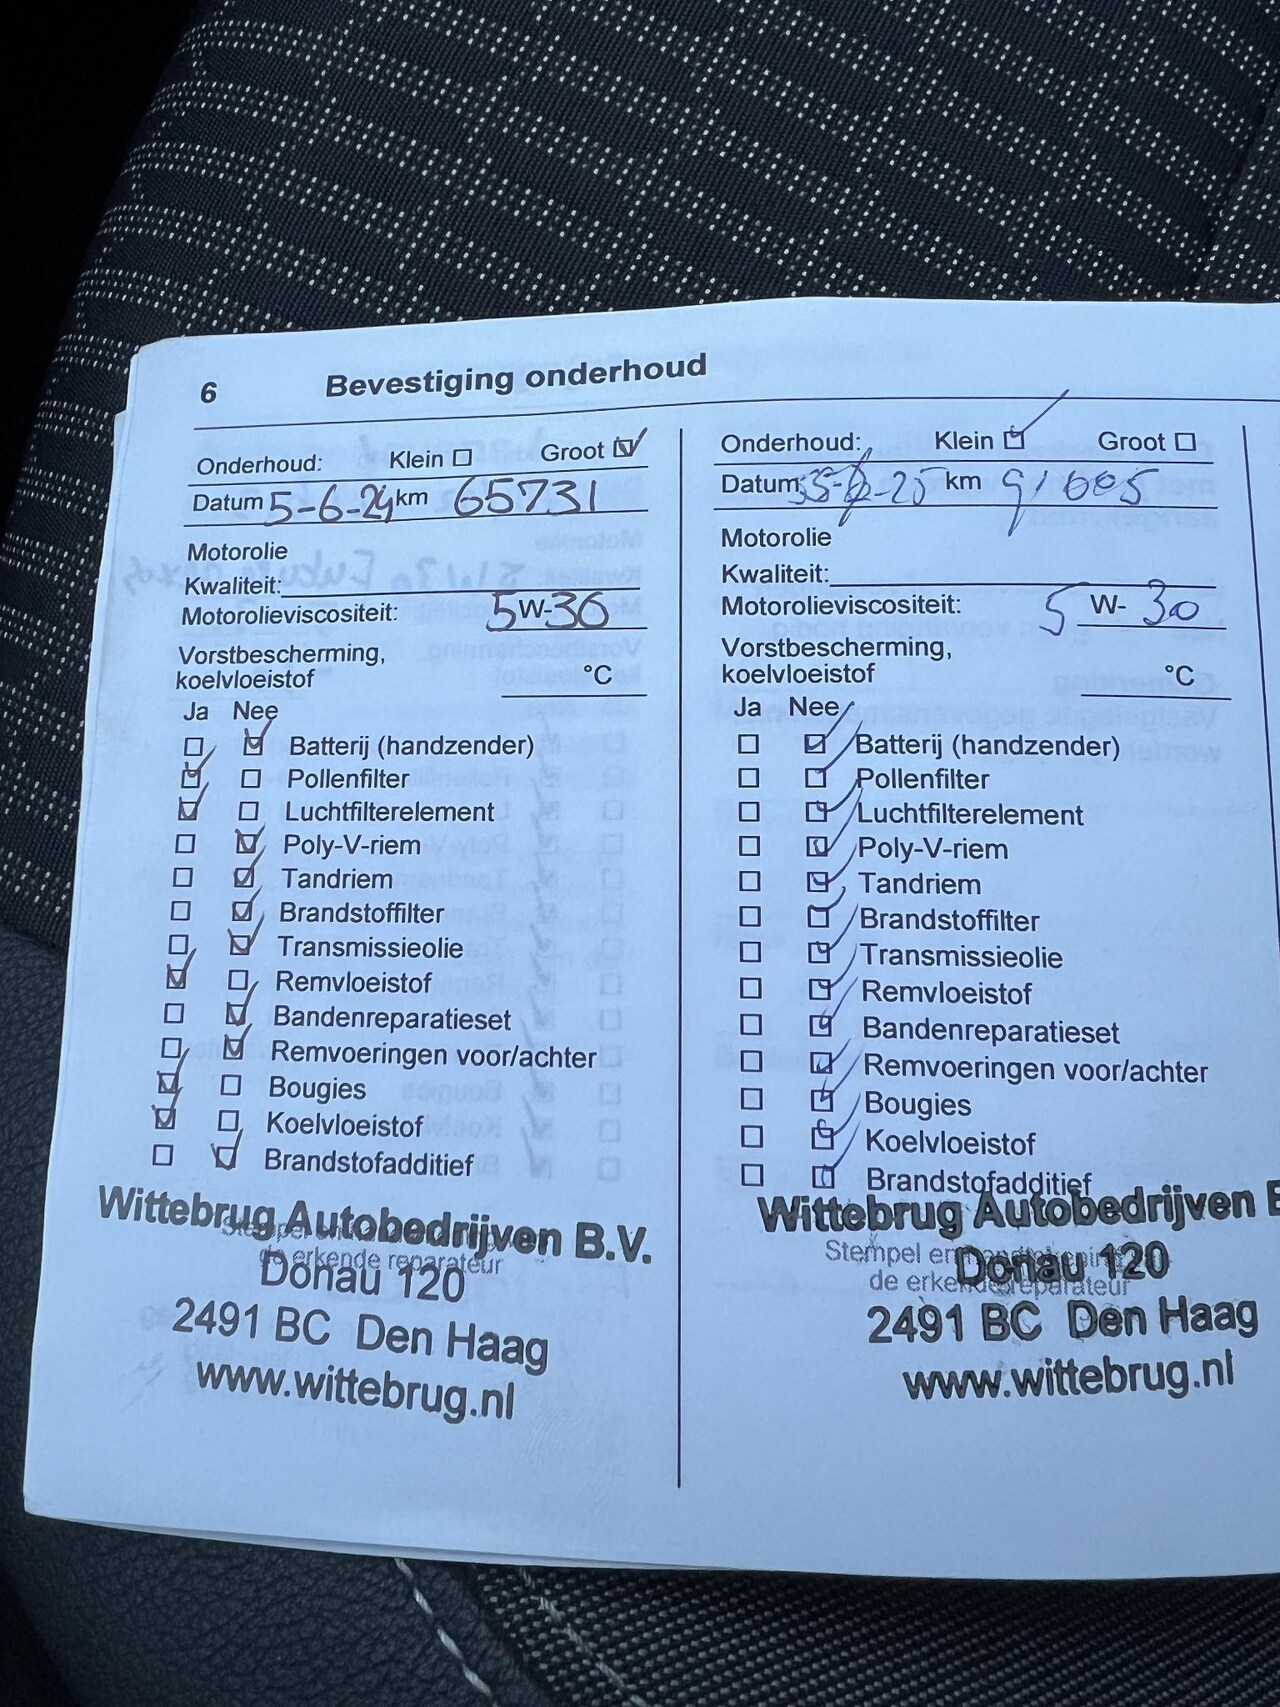 6 Bevestiging onderhoud
Onderhoud: Klein Groot
Datum 5-6-24 km 65731
Motorolie
Kwaliteit:
Motorolieviscositeit: 5 W-30
Vorstbescherming,
koelvloeistof °C
Ja Nee
Batterij (handzender)
Pollenfilter
Luchtfilterelement
Poly-V-riem
Tandriem
Brandstoffilter
Transmissieolie
Remvloeistof
Bandenreparatieset
Remvoeringen voor/achter
Bougies
Koelvloeistof
Brandstofadditief
Stempel en
de erkende reparateur
Wittebrug Autobedrijven B.V.
Donau 120
2491 BC Den Haag
www.wittebrug.nl
Onderhoud: Klein Groot
Datum km 91605
Motorolie
Kwaliteit:
Motorolieviscositeit: 5 W- 30
Vorstbescherming,
koelvloeistof °C
Ja Nee
Batterij (handzender)
Pollenfilter
Luchtfilterelement
Poly-V-riem
Tandriem
Brandstoffilter
Transmissieolie
Remvloeistof
Bandenreparatieset
Remvoeringen voor/achter
Bougies
Koelvloeistof
Brandstofadditief
Wittebrug Autobedrijven B
Stempel en
de erkende reparateur
Donau 120
2491 BC Den Haag
www.wittebrug.nl